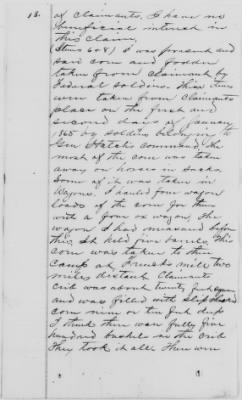 13.
of claimants, I have no
beneficial interest in
this claim,
(Items 6 & 8) I was present and
said corn and fodder
taken from claimant by
Federal soldiers. These items
were taken from claimants
place on the first and
second days of January
1865 by soldiers belonging to
Gen Hatch command, the
most of the corn was taken
away on horses in sacks
Some of it was taken in
Wagons. I hauled four wagon
loads of the corn for them
with a four ox wagon, the
wagon I had measured before
this. It held five barrels. This
corn was taken to their
camp at mile two
miles distant Claimants
crib was about twenty feet
and was filled with
corn nine or ten feet deep
I think there was fully five
hundred bushels in the crib
They took it all. There were